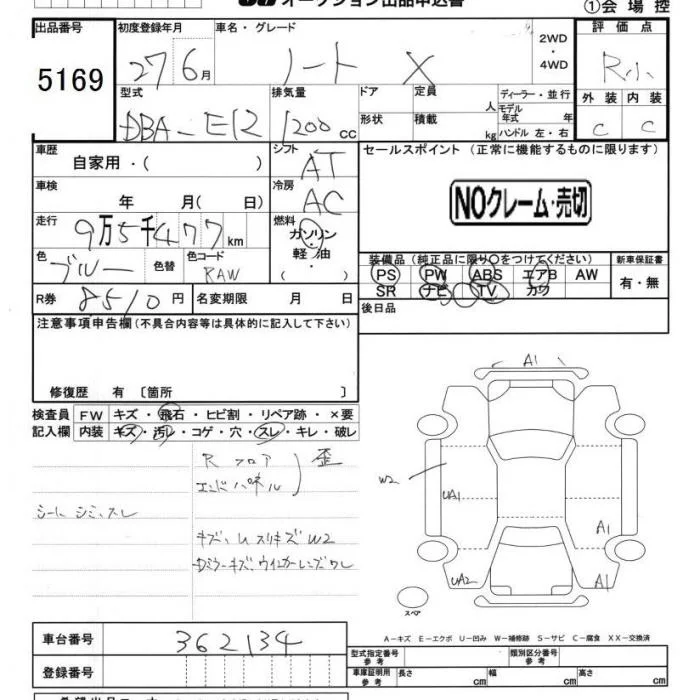 オークション出品申込書
①会場控
出品番号 初度登録年月 車名・グレード 2WD・4WD 評価点
5169 27 6月 ノート X R小
型式 排気量 ドア 定員 人 ディーラー・並行 外装 内装
DBA-E12 1200cc 形状 積載 kg モデル年式 年式 ハンドル 左・右 C C
車歴 シフト セールスポイント (正常に機能するものに限ります)
自家用・( ) AT
車検 冷房
年 月(日) AC NOクレーム・売切
走行 燃料
9万5千477km ガソリン・軽油・( )
色 色替 色コード 装備品(純正品に限り○をつけてください) 新車保証書
ブルー RAW PS PW ABS エアB AW 有・無
R券 8510円 名変期限 月 日 SR ナビ TV カワ
後日品
注意事項申告欄(不具合内容等は具体的に記入して下さい)
修復歴 有 〔箇所 〕
検査員 FW キズ・飛石・ヒビ割・リペア跡・×要
記入欄 内装 キズ・汚レ・コゲ・穴・スレ・キレ・破レ
Rフロア
エンドパネル 歪
シート シミ、スレ
キズ、U スリキズ W2
ミラーキズ、ウインカーレンズワレ
A1
W2
UA1
A1
UA2
A1
スペア
A-キズ E-エクボ U-凹み W-補修跡 S-サビ C-腐食 XX-交換済
車台番号 362134 型式指定番号 参考 類別区分番号 参考
登録番号 車庫証明用 参考 長さ cm 幅 cm 高さ cm